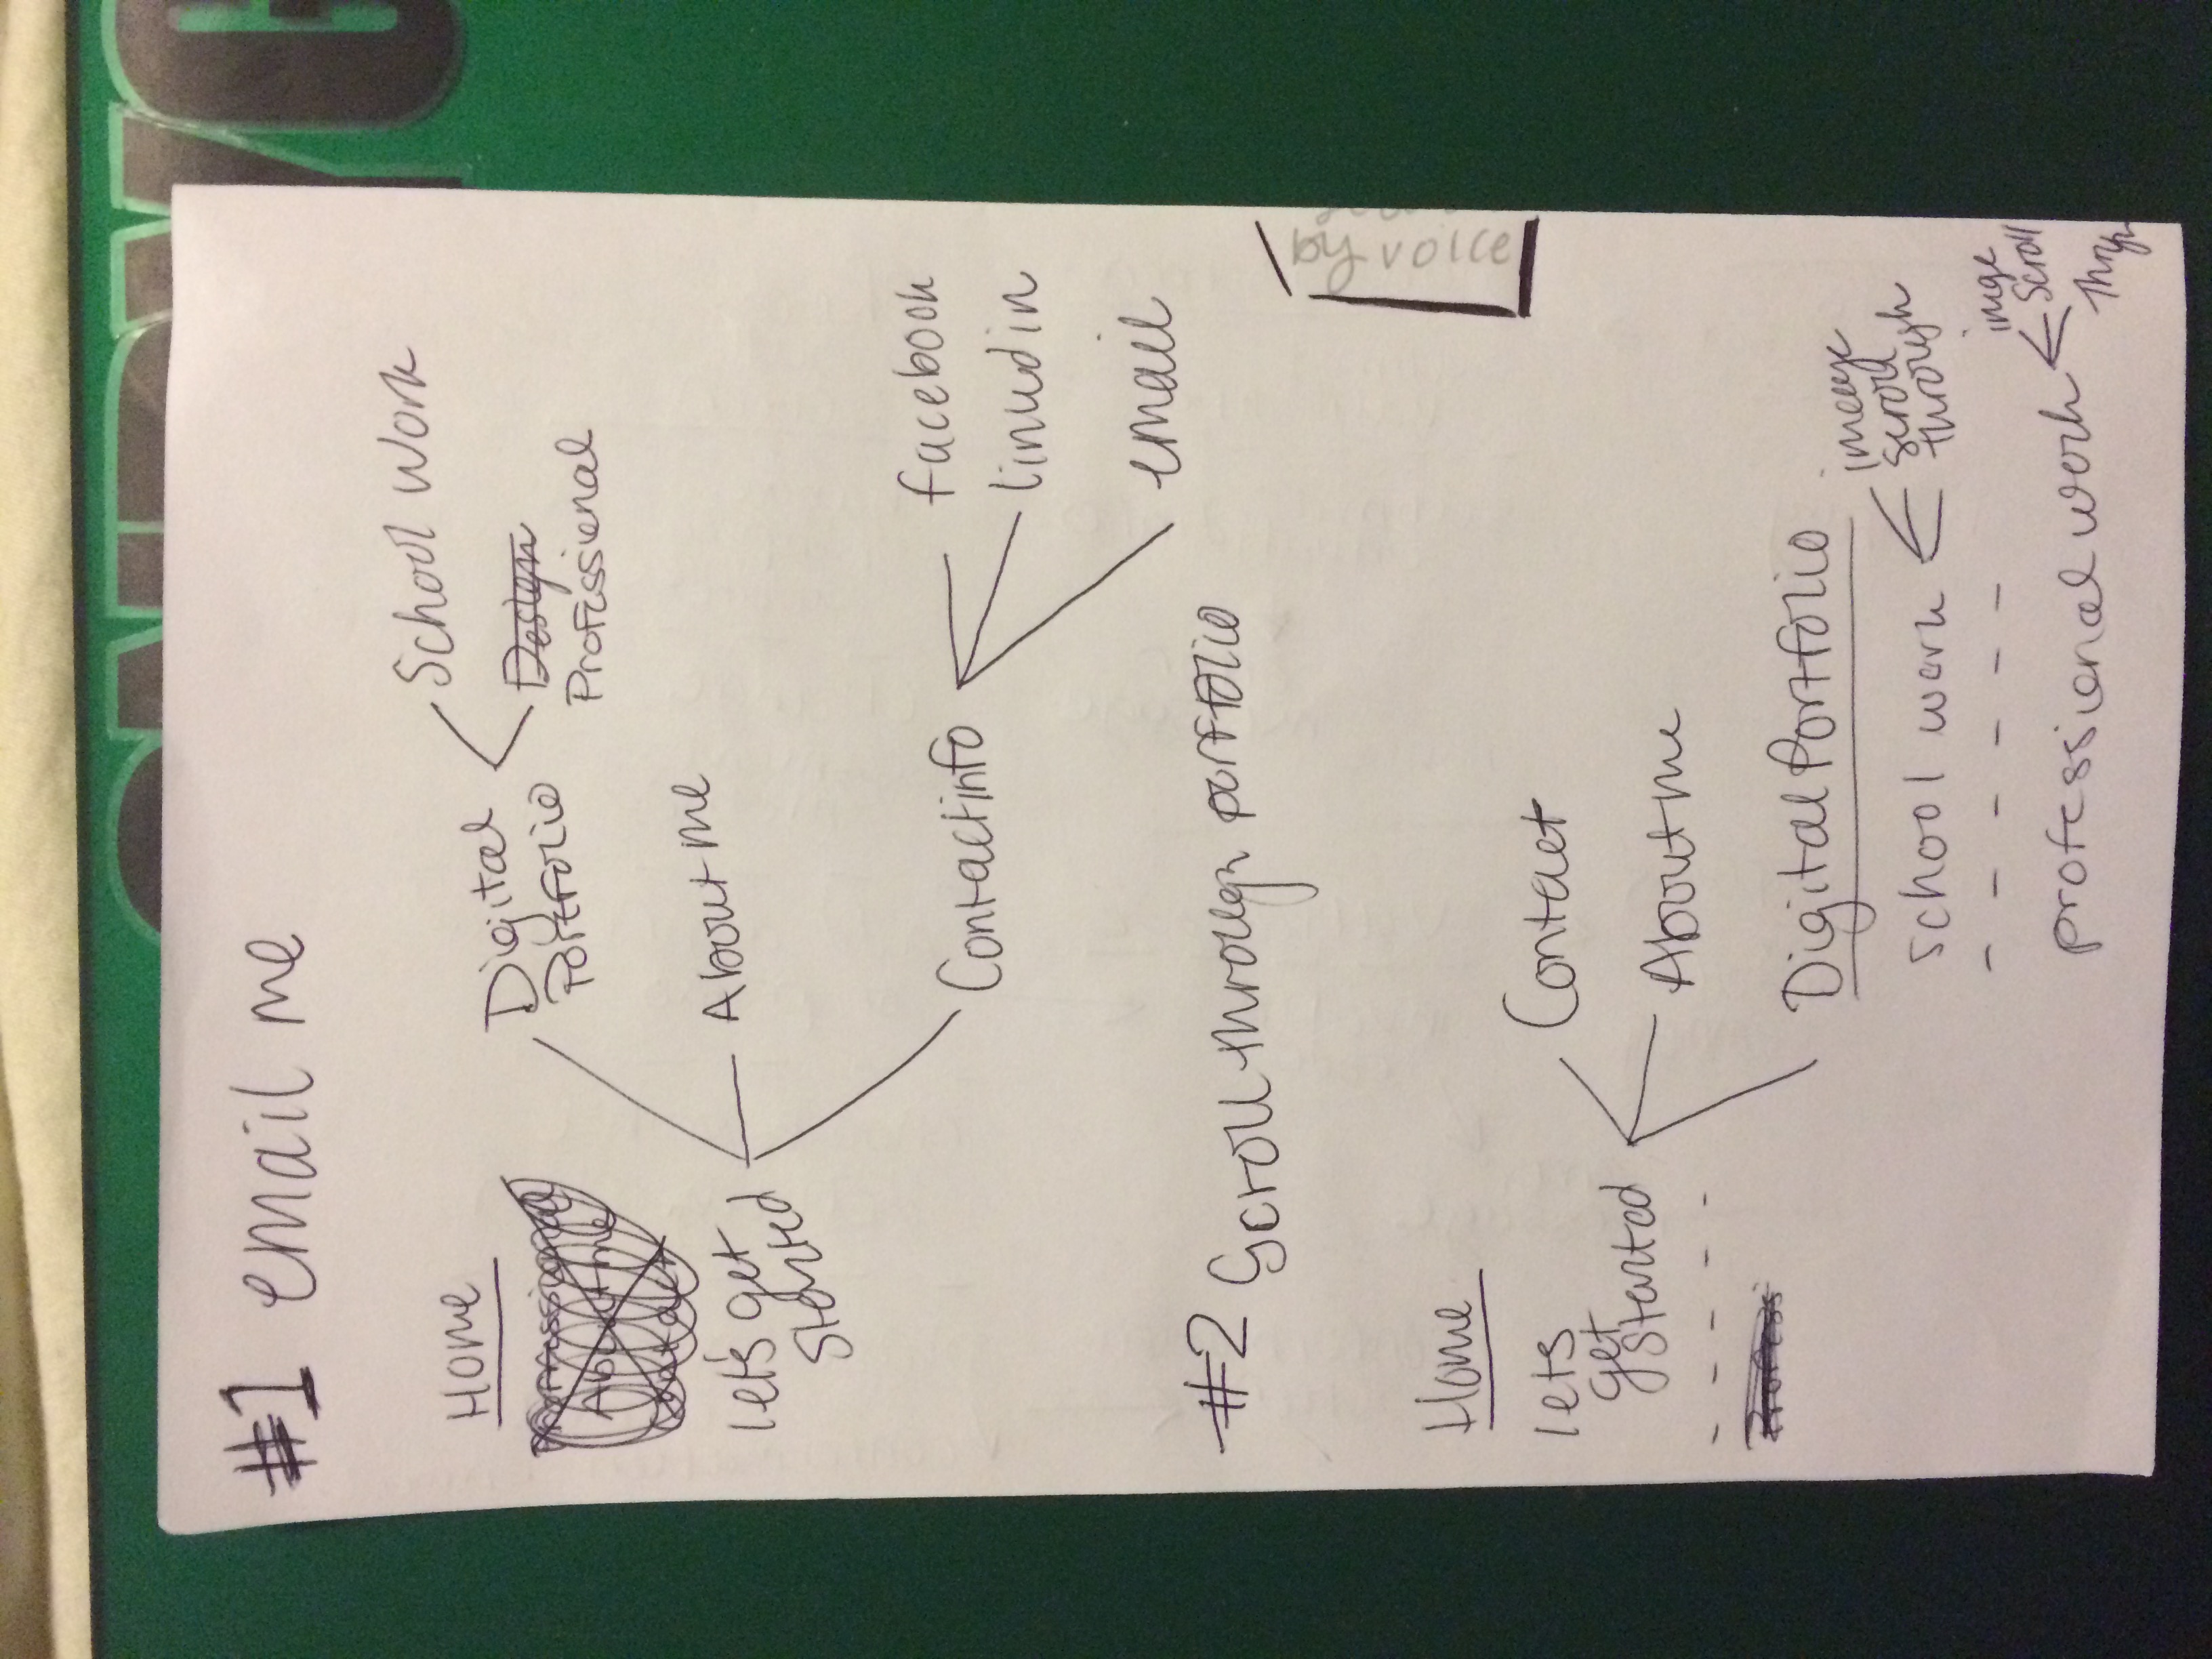 #1 email me
Home
Professional
About me
Contact
let's get
started
Digital
Portfolio
School Work
Design
Professional
About me
Contact info
facebook
linkedin
email
#2 Scroll through portfolio
by voice
Home
lets
get
started
Profess
Contact
About me
Digital Portfolio
school work
image
scroll
through
professional work
imge
Scroll